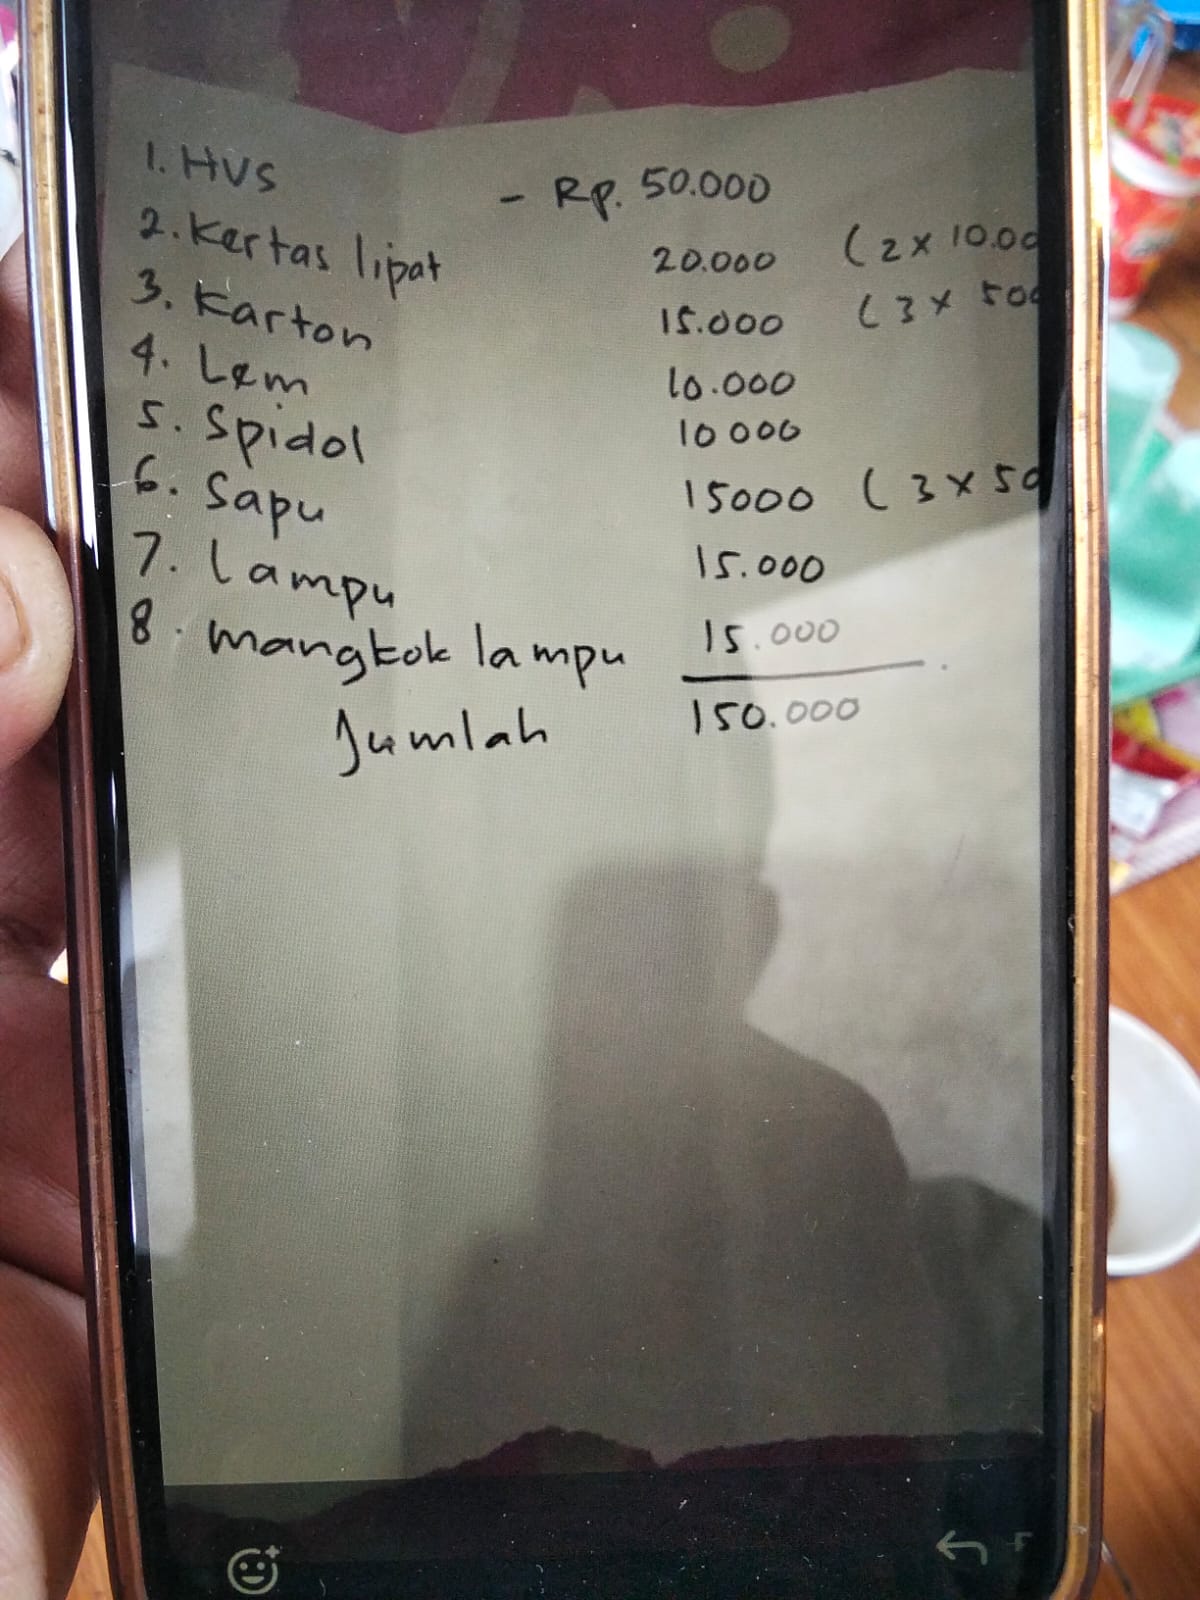 1. HVS - Rp. 50.000
2. Kertas lipat 20.000 ( 2 x 10.00
3. Karton 15.000 ( 3 x 500
4. Lem 10.000
5. Spidol 10 000
6. Sapu 15000 ( 3 x 50
7. Lampu 15.000
8. mangkok lampu 15.000
Jumlah 150.000